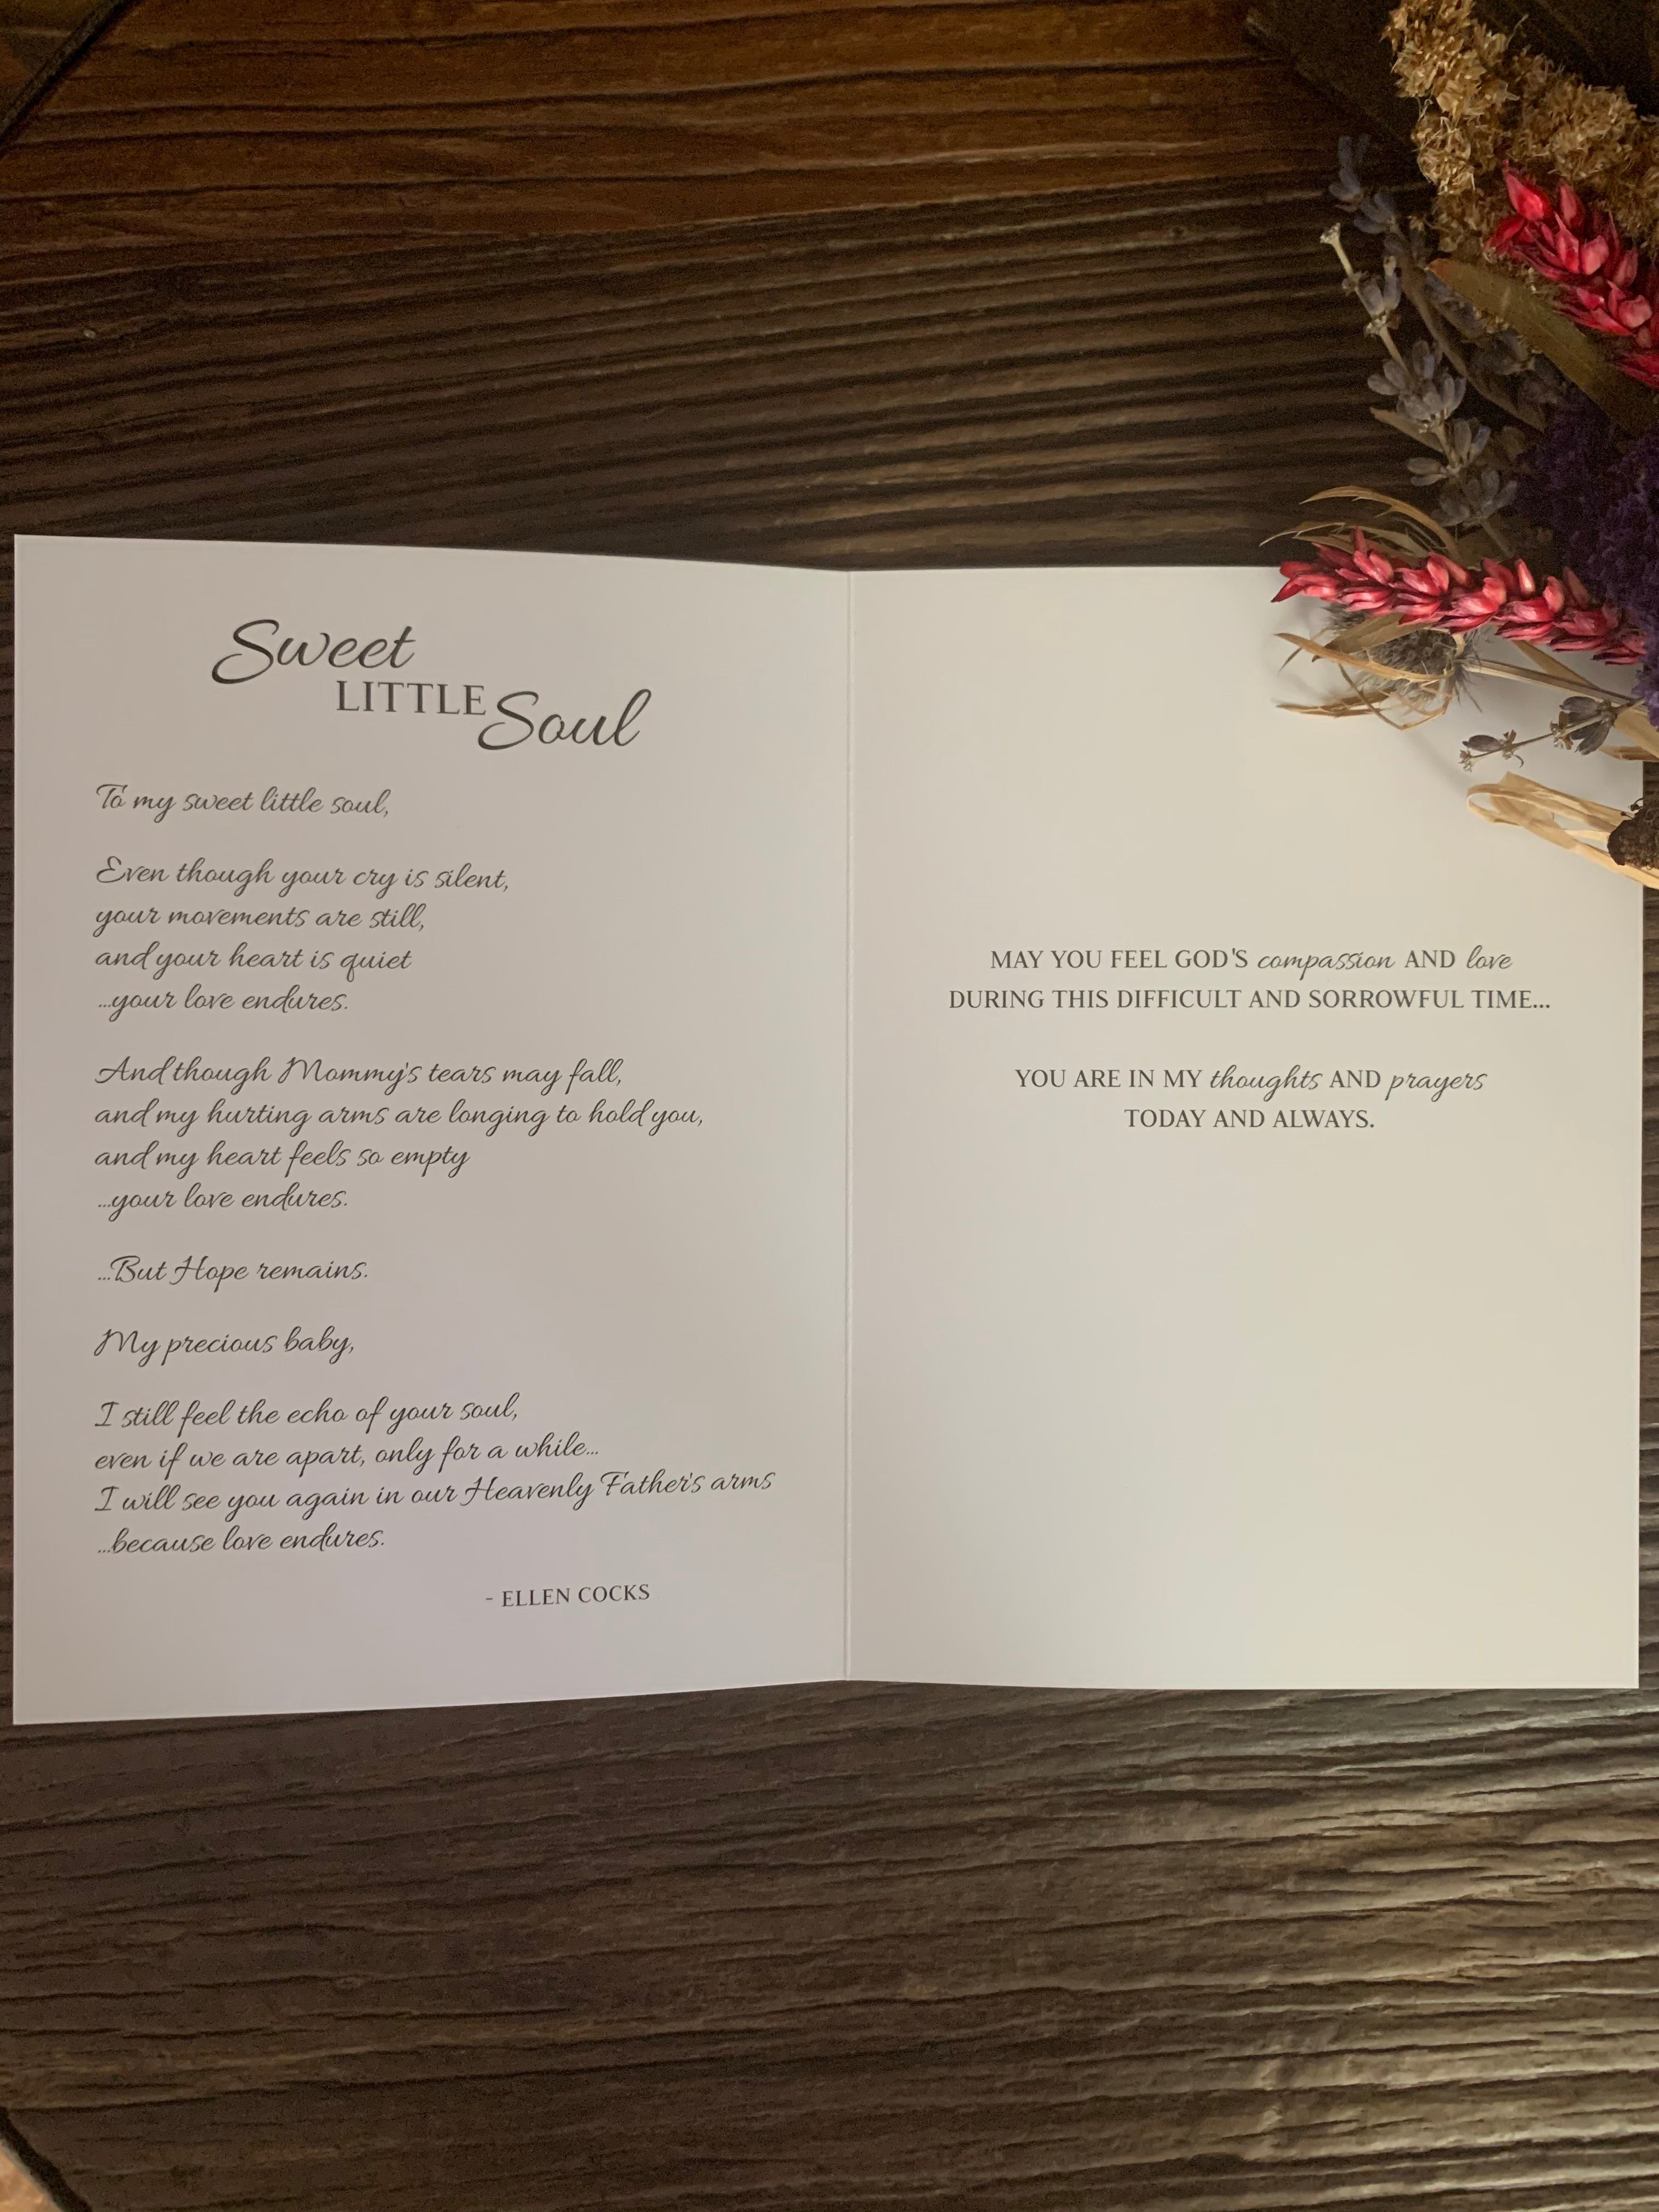 Sweet
LITTLE Soul
To my sweet little soul,
Even though your cry is silent,
your movements are still,
and your heart is quiet
...your love endures.
And though Mommy's tears may fall,
and my hurting arms are longing to hold you,
and my heart feels so empty
...your love endures.
...But Hope remains.
My precious baby,
I still feel the echo of your soul,
even if we are apart, only for a while...
I will see you again in our Heavenly Father's arms
...because love endures.
- ELLEN COCKS
MAY YOU FEEL GOD'S compassion AND love
DURING THIS DIFFICULT AND SORROWFUL TIME...
YOU ARE IN MY thoughts AND prayers
TODAY AND ALWAYS.